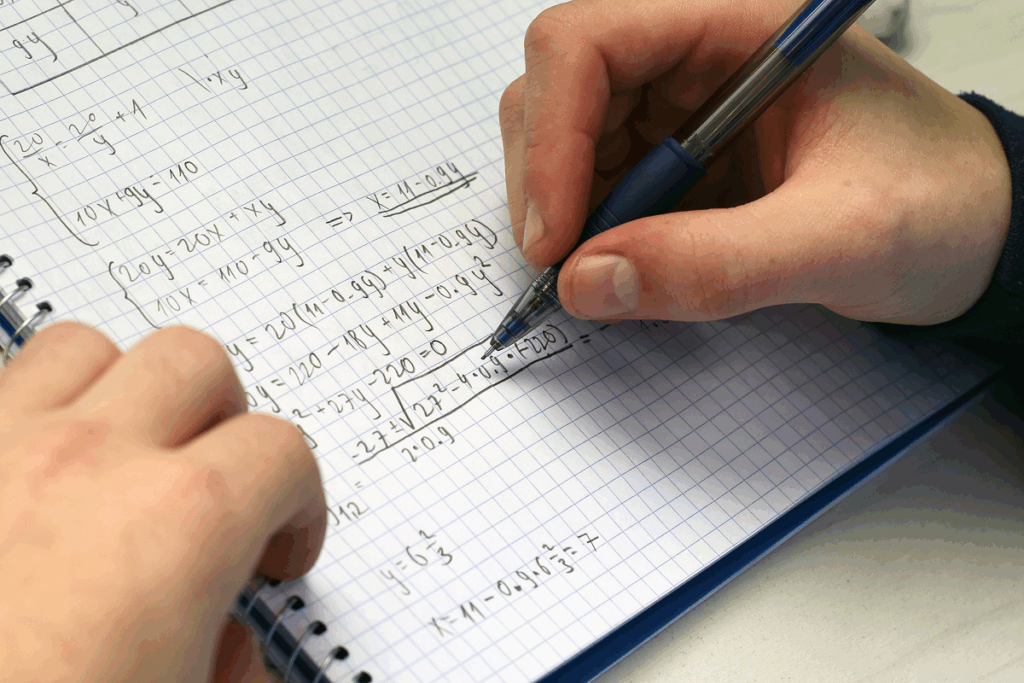 9y y
20/x = 20/y + 1 \·xy
10x+9y=110
20y=20x+xy
10x=110-9y => x=11-0.9y
y=20(11-0.9y)+y(11-0.9y)
y=220-18y+11y-0.9y²
²+27y-220=0
-27±√27²-4·0.9·(-220) =
2·0.9
1,2 =
y=6 2/3
x=11-0.9·6 2/3=7